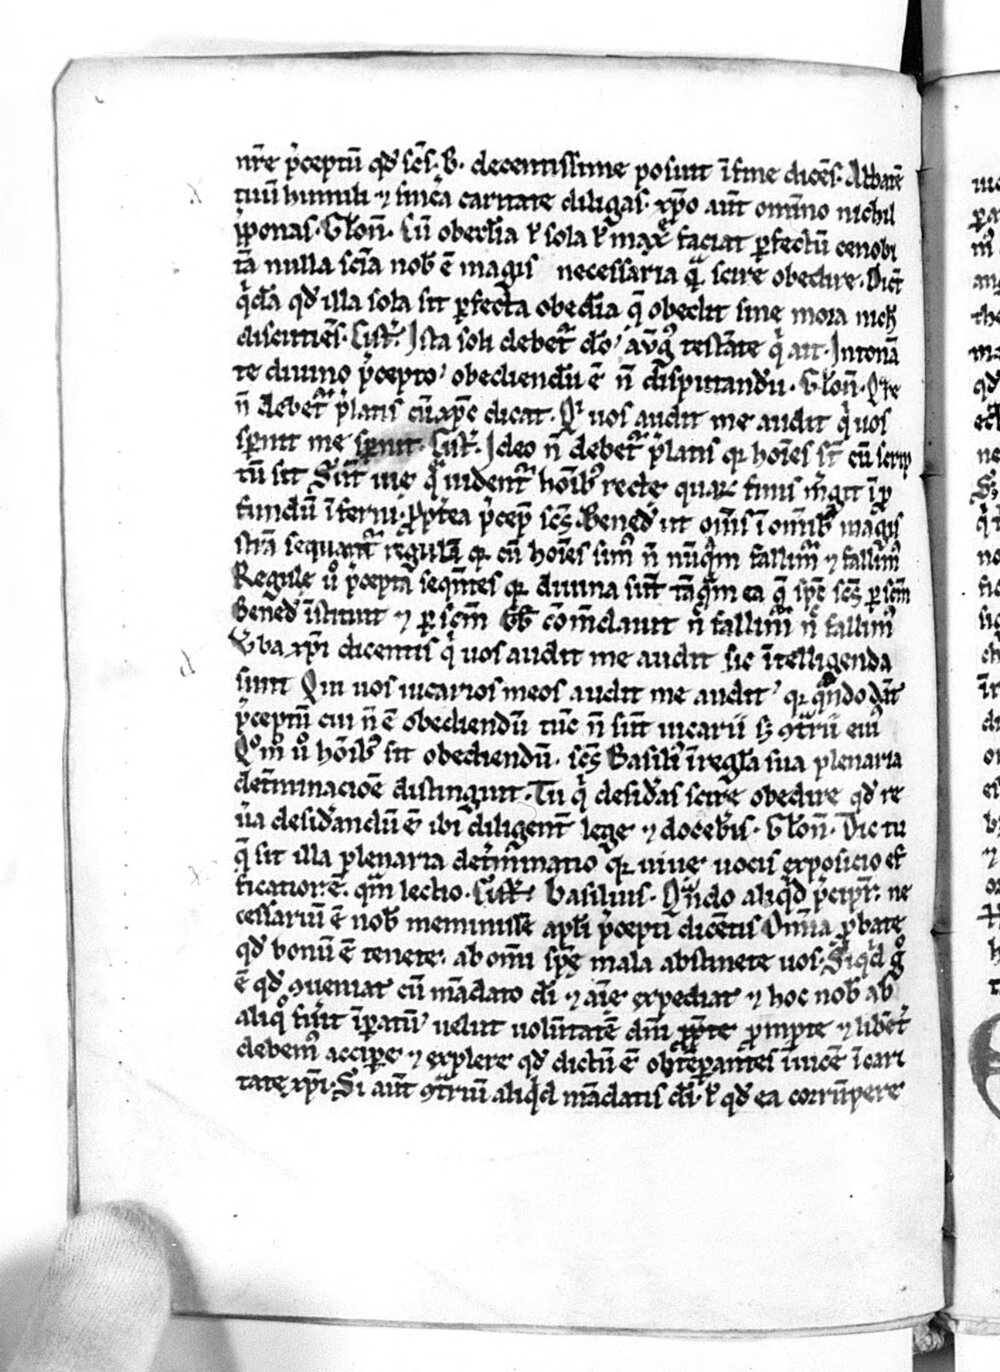 nr̄e p̄ceptū qđ sc̄s .B. decentissime posuit ī fine dicēs. Abbatē
tuū humili ⁊ sincͣa caritate diligas. xp̄o aūt om̄ino nichil
p̄ponas. Cū obed̄ia ł sola ł maxͥ faciat ꝑfectū cenobi
tā nulla sc̄ia nob̄ ē magis necessaria qͣ̄ scire obedire. Dic̄t
qͥdā qđ illa sola sit ꝑfecta obed̄ia q̄ obedit sine mora nich̄
discutiēs. Ista soli debet̄ dō, testāte qͥ ait. Intonā
te diuino p̄cepto, obediendū ē n̄ disputandū.
n̄ debet̄ p̄latis cū xp̄c dicat. Qͥ uos audit me audit qͥ uos
spernit me spernit. Ideo n̄ debet̄ p̄latis qꝛ hoīes st̄ cū scrip
tū sit Sūt uie q̄ uident̄ hoībꝰ recte quaꝝ finis m̄git ī ꝓ
fundū īferni. ꝓpt̄ea p̄cep̄ sc̄s Bened̄ ut om̄s ī om̄ibꝰ magis
strā sequant̄ regulā qꝛ cū hoīes simꝰ n̄ nūqͣm fallimꝰ ⁊ fallimꝰ
Regule u̇ p̄cepta seqn̄tes qꝛ diuina sūt tāqͣm ea q̄ sp̄c sc̄s ꝑ sc̄m
Bened̄ īstituit ⁊ ꝑ sc̄m com̄dauit n̄ fallimꝰ n̄ fallimꝰ
Uba xp̄i dicentis qͥ uos audit me audit sic ītelligenda
sunt Qui uos uicarios meos audit me audit, qꝛ qͣndo dāt
p̄ceptū cui n̄ ē obediendū tūc n̄ sūt uicarii sꝫ ꝯͣrii eiꝰ
Qͦmͦ u̇ hoībꝰ sit obediendū. sc̄s Basiliꝰ ī regl̄a sua plenaria
det̄minacioē distinguit. Tu qͥ desid̄as scire obedire qđ re
ūa desid̄andū ē ibi diligent̄ lege ⁊ doceb̄is. Dic tu
q̄ sit illa plenaria det̄minatio qꝛ uiue uocis exposicio ef
ficatior ē. qͣm lectio. Basilius. Qn̄do aliqͥd p̄cipit̄. ne
cessariū ē nob̄ meminisse apl̄i p̄cepti dicētis Om̄ia ꝓbate
qđ bonū ē tenete. ab omi spē mala abstinete uos. Si qͥd gͦ
ē qđ ꝯueniat cū mādato dī ⁊ aīe expediat ⁊ hoc nob̄ ab
aliqͦ fuīt īꝑatū, uelut uolūtatē dn̄i ꝓmpte ⁊ libēt̄
debemꝰ accipe ⁊ explere qđ dictū ē obtēꝑantes īuicē ī cari
tate xp̄i. Si aūt ꝯͣriū aliqͥd mādatis dī. ł qđ ea corrūpere